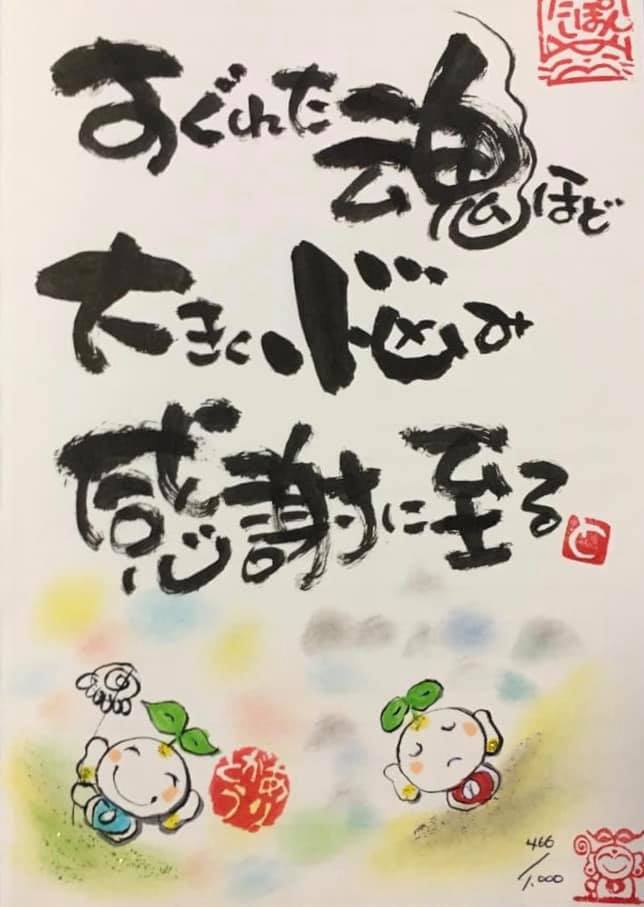 にっぽん
すぐれた魂ほど
大きく悩み
感謝に至る
と
ありがとう
466/1,000